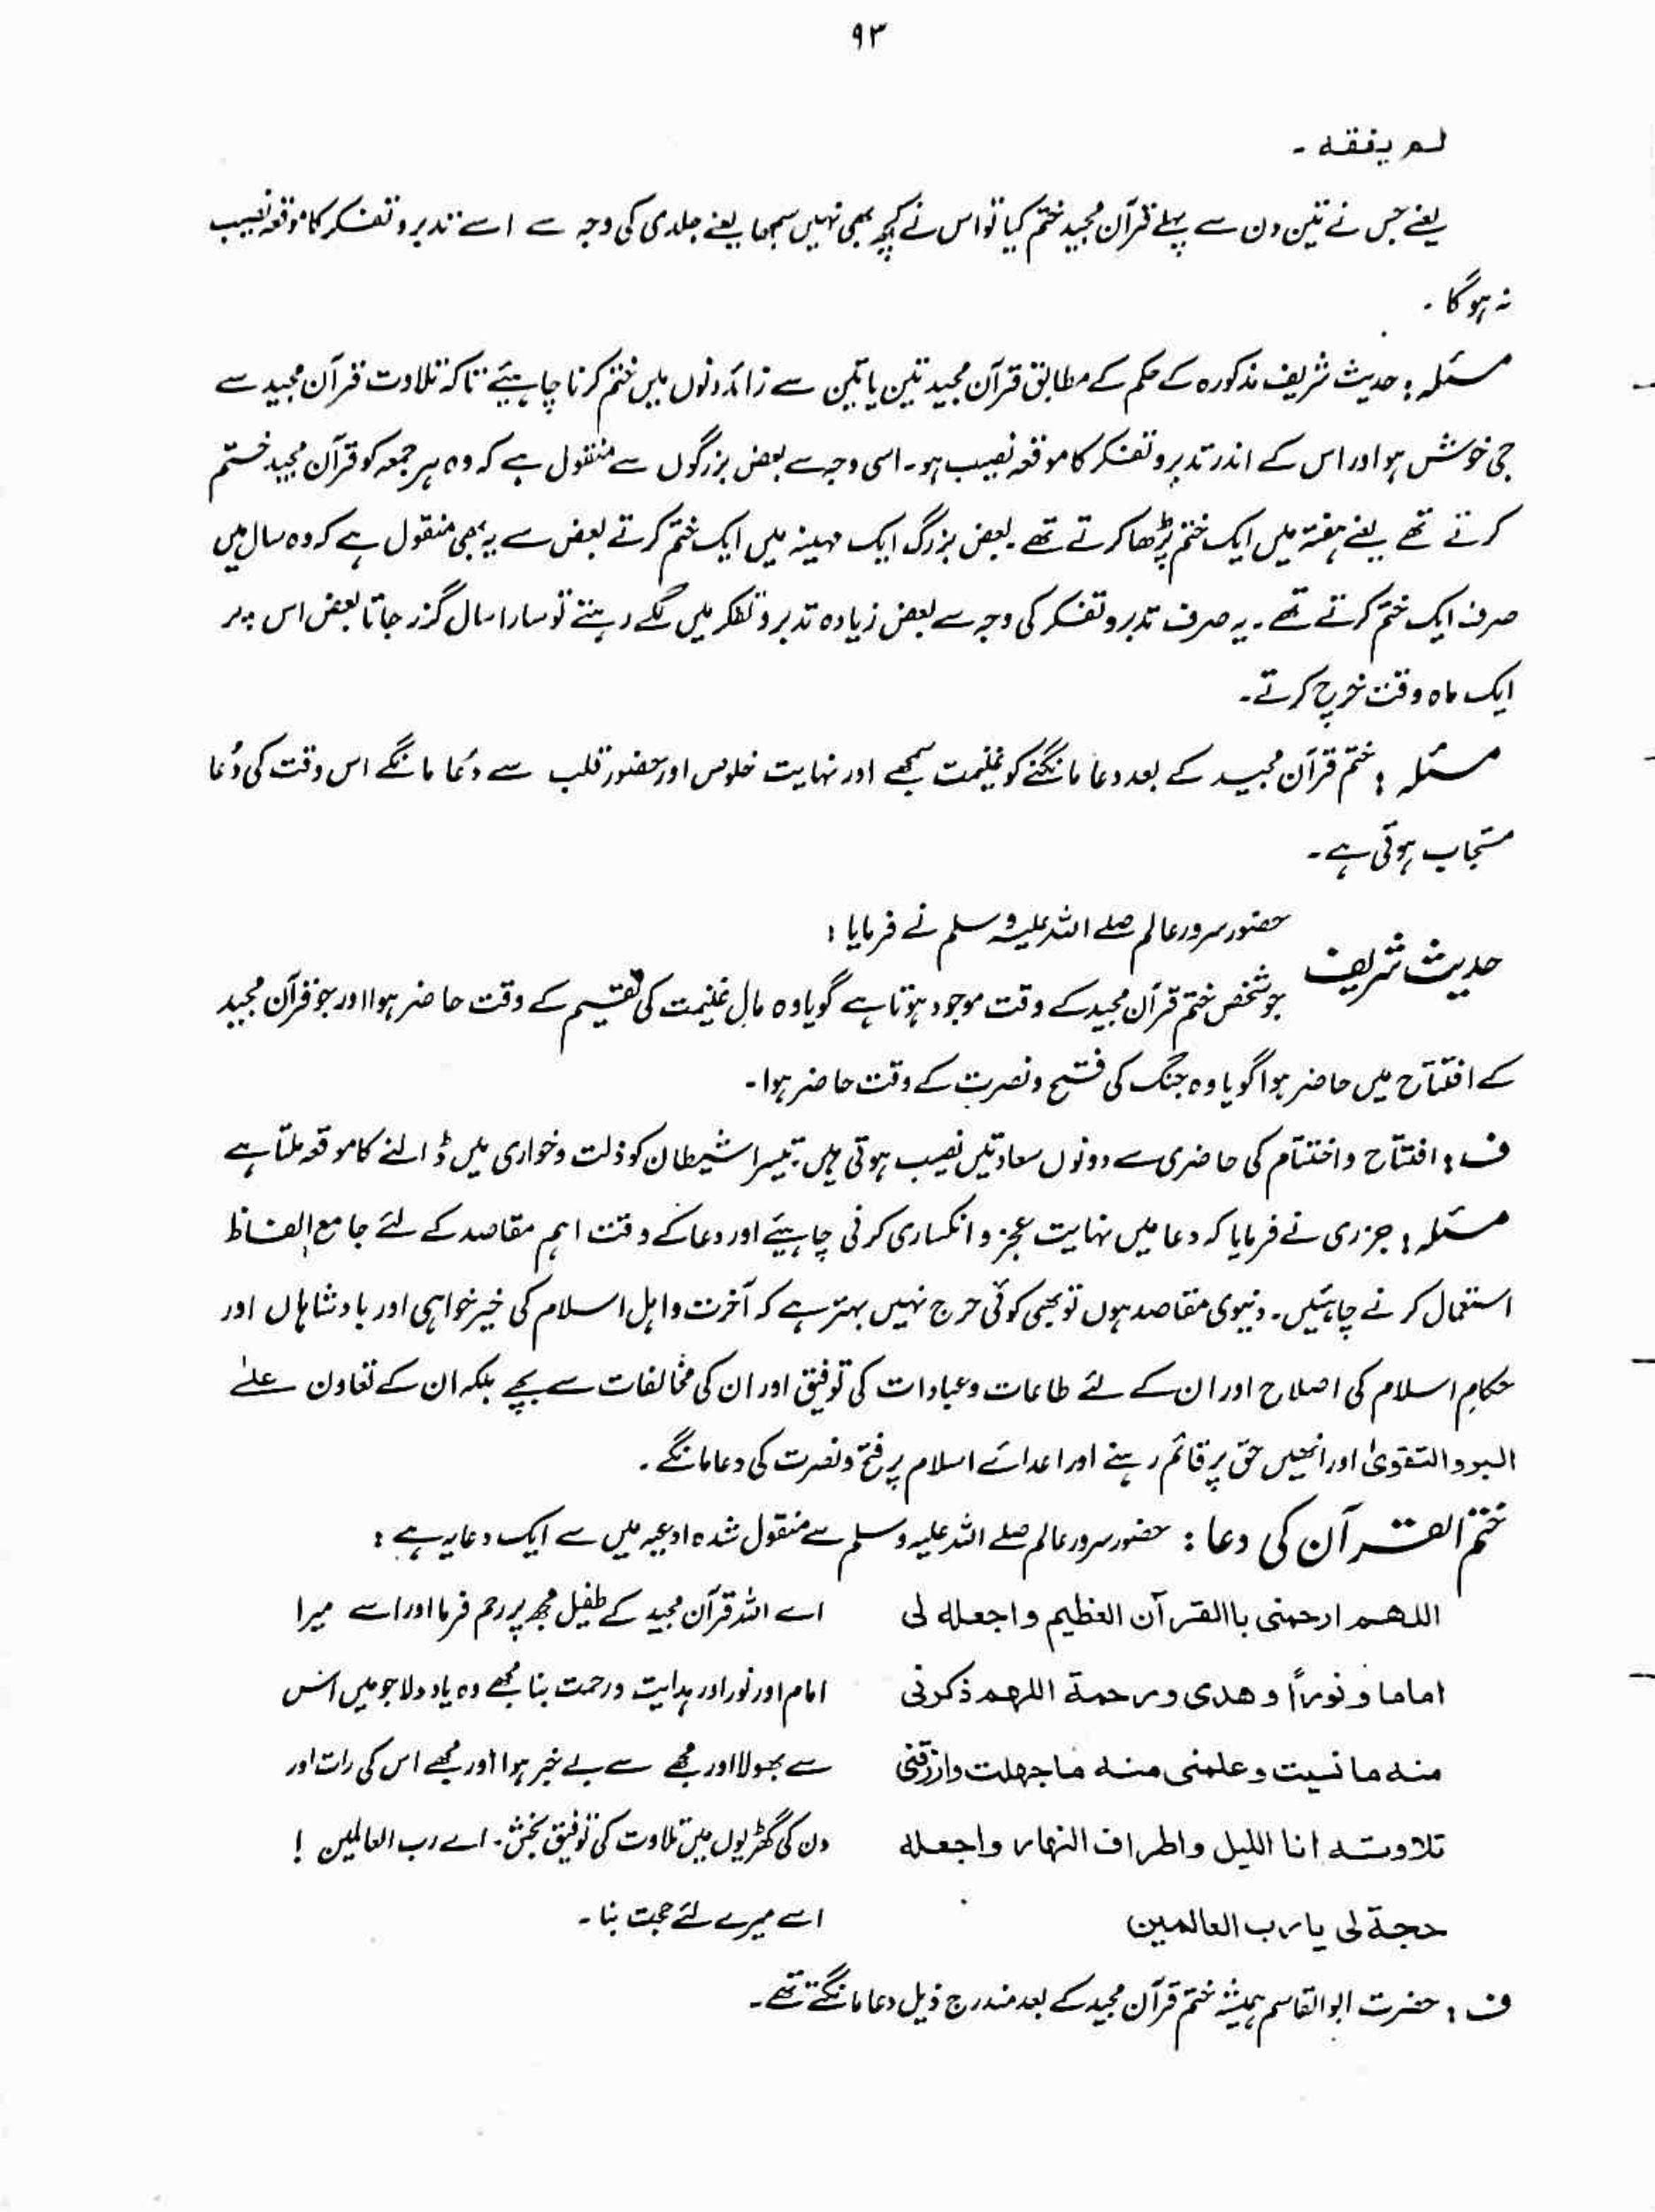 ۹۳
لم یفقہ ۔
یعنے جس نے تین دن سے پہلے قرآن مجید ختم کیا تو اس نے کچھ بھی نہیں سمجھا یعنے جلدی کی وجہ سے اسے تدبر و تفکر کا موقعہ نصیب
نہ ہوگا ۔
مسئلہ : حدیث شریف مذکورہ کے حکم کے مطابق قرآن مجید تین یا تین سے زائد دنوں میں ختم کرنا چاہیئے تاکہ تلاوت قرآن مجید سے
جی خوش ہو اور اس کے اندر تدبر و تفکر کا موقعہ نصیب ہو ۔ اسی وجہ سے بعض بزرگوں سے منقول ہے کہ وہ ہر جمعہ کو قرآن مجید ختم
کرتے تھے یعنے ہفتہ میں ایک ختم پڑھا کرتے تھے ۔ بعض بزرگ ایک مہینہ میں ایک ختم کرتے بعض سے یہ بھی منقول ہے کہ وہ سال میں
صرف ایک ختم کرتے تھے ۔ یہ صرف تدبر و تفکر کی وجہ سے بعض زیادہ تدبر و تفکر میں لگے رہتے تو سارا سال گذر جاتا بعض اس پر
ایک ماہ وقت خرچ کرتے ۔
مسئلہ : ختم قرآن مجید کے بعد دعا مانگنے کو غنیمت سمجھے اور نہایت خلوص اور حضور قلب سے دُعا مانگے اس وقت کی دُعا
مستجاب ہوتی ہے ۔
حضور سرور عالم صلے اللہ علیہ وسلم نے فرمایا :
حدیث شریف جو شخص ختم قرآن مجید کے وقت موجود ہوتا ہے گویا وہ مال غنیمت کی تقسیم کے وقت حاضر ہوا اور جو قرآن مجید
کے افتتاح میں حاضر ہوا گویا وہ جنگ کی فتح و نصرت کے وقت حاضر ہوا ۔
ف : افتتاح و اختتام کی حاضری سے دونوں سعادتیں نصیب ہوتی ہیں ، تیسرا شیطان کو ذلت و خواری میں ڈالنے کا موقعہ ملتا ہے
مسئلہ : جزری نے فرمایا کہ دعا میں نہایت عجز و انکساری کرنی چاہیئے اور دعا کے وقت اہم مقاصد کے لئے جامع الفاظ
استعمال کرنے چاہئیں ۔ دنیوی مقاصد ہوں تو بھی کوئی حرج نہیں بہتر ہے کہ آخرت و اہل اسلام کی خیر خواہی اور بادشاہاں اور
حکامِ اسلام کی اصلاح اور ان کے لئے طاعات و عبادات کی توفیق اور ان کی مخالفات سے بچے بلکہ ان کے تعاون علےٰ
البر و التقویٰ اور انھیں حق پر قائم رہنے اور اعدائے اسلام پر فتح و نصرت کی دعا مانگے ۔
ختم القرآن کی دعا : حضور سرور عالم صلے اللہ علیہ وسلم سے منقول شدہ ادعیہ میں سے ایک دعا یہ ہے :
اللھم ارحمنی باالقرآن العظیم واجعلہ لی
اماما و نوراً و ھدی و رحمۃ اللہم ذکرنی
منہ ما نسیت و علمنی منہ ما جہلت وارزقنی
تلاوتہ انا اللیل و اطراف النہار واجعلہ
حجۃ لی یا رب العالمین
اے اللہ قرآن مجید کے طفیل مجھ پر رحم فرما اور اسے میرا
امام اور نور اور ہدایت و رحمت بنا مجھے وہ یاد دلا جو میں اس
سے بھولا اور مجھے سے بے خبر ہوا اور مجھے اس کی رات اور
دن کی گھڑیوں میں تلاوت کی توفیق بخش ۔ اے رب العالمین !
اسے میرے لئے حجت بنا ۔
ف : حضرت ابو القاسم ہمیشہ ختم قرآن مجید کے بعد مندرج ذیل دعا مانگتے تھے ۔